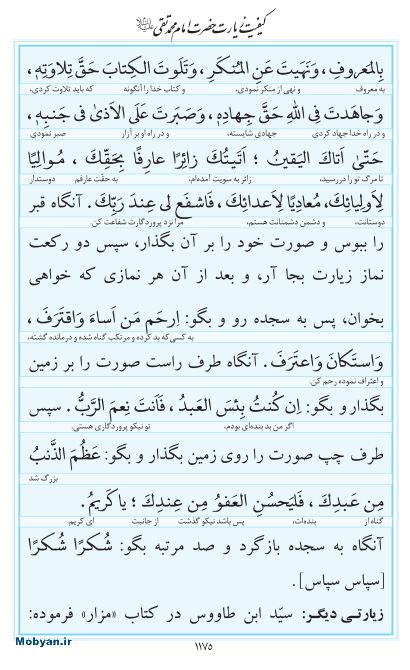 کیفیت زیارت حضرت امام محمد تقی علیه‌السلام
بِالمَعروفِ ، وَنَهَیتَ عَنِ المُنکَرِ ، وَتَلَوتَ الکِتابَ حَقَّ تِلاوَتِهِ ،
به معروف و نهی از منکر نمودی، و کتاب خدا را آنگونه که باید تلاوت کردی،
وَجاهَدتَ فِی اللهِ حَقَّ جِهادِهِ، وَصَبَرتَ عَلَی الاَذیٰ فی جَنبِهِ ،
و در راه خدا جهاد کردی جهادی شایسته، و در راه او بر آزار صبر نمودی
حَتّیٰ اَتاكَ الیَقینُ ؛ اَتَیتُكَ زائِرًا عارِفًا بِحَقِّكَ ، مُوالِیًا
تا مرگ تو را در رسید، زائر به سویت آمده‌ام، به حقّت عارفم دوستدار
لِاَولِیائِكَ، مُعادِیًا لِاَعدائِكَ، فَاشفَع لی عِندَ رَبِّكَ . آنگاه قبر
دوستانت، و دشمن دشمنانت هستم، مرا نزد پروردگارت شفاعت کن.
را ببوس و صورت خود را بر آن بگذار، سپس دو رکعت
نماز زیارت بجا آر، و بعد از آن هر نمازی که خواهی
بخوان، پس به سجده رو و بگو: اِرحَم مَن اَساءَ وَاقتَرَفَ ،
به کسی که بد کرده و مرتکب گناه شده و درمانده گشته،
وَاستَکانَ وَاعتَرَفَ . آنگاه طرف راست صورت را بر زمین
و اعتراف نموده رحم کن.
بگذار و بگو: اِن کُنتُ بِئسَ العَبدُ ، فَاَنتَ نِعمَ الرَّبُّ . سپس
اگر من بد بنده‌ای بودم، تو نیکو پروردگاری هستی.
طرف چپ صورت را روی زمین بگذار و بگو: عَظُمَ الذَّنبُ
بزرگ شد
مِن عَبدِكَ ، فَلیَحسُنِ العَفوُ مِن عِندِكَ ؛ یا کَریمُ.
گناه از بنده‌ات، پس باید نیکو گذشت از جانبت ای کریم.
آنگاه به سجده بازگرد و صد مرتبه بگو: شُکرًا شُکرًا
[سپاس سپاس].
زیارتی دیگر: سیّد ابن طاووس در کتاب «مزار» فرموده:
۱۱۷۵
Mobyan.ir